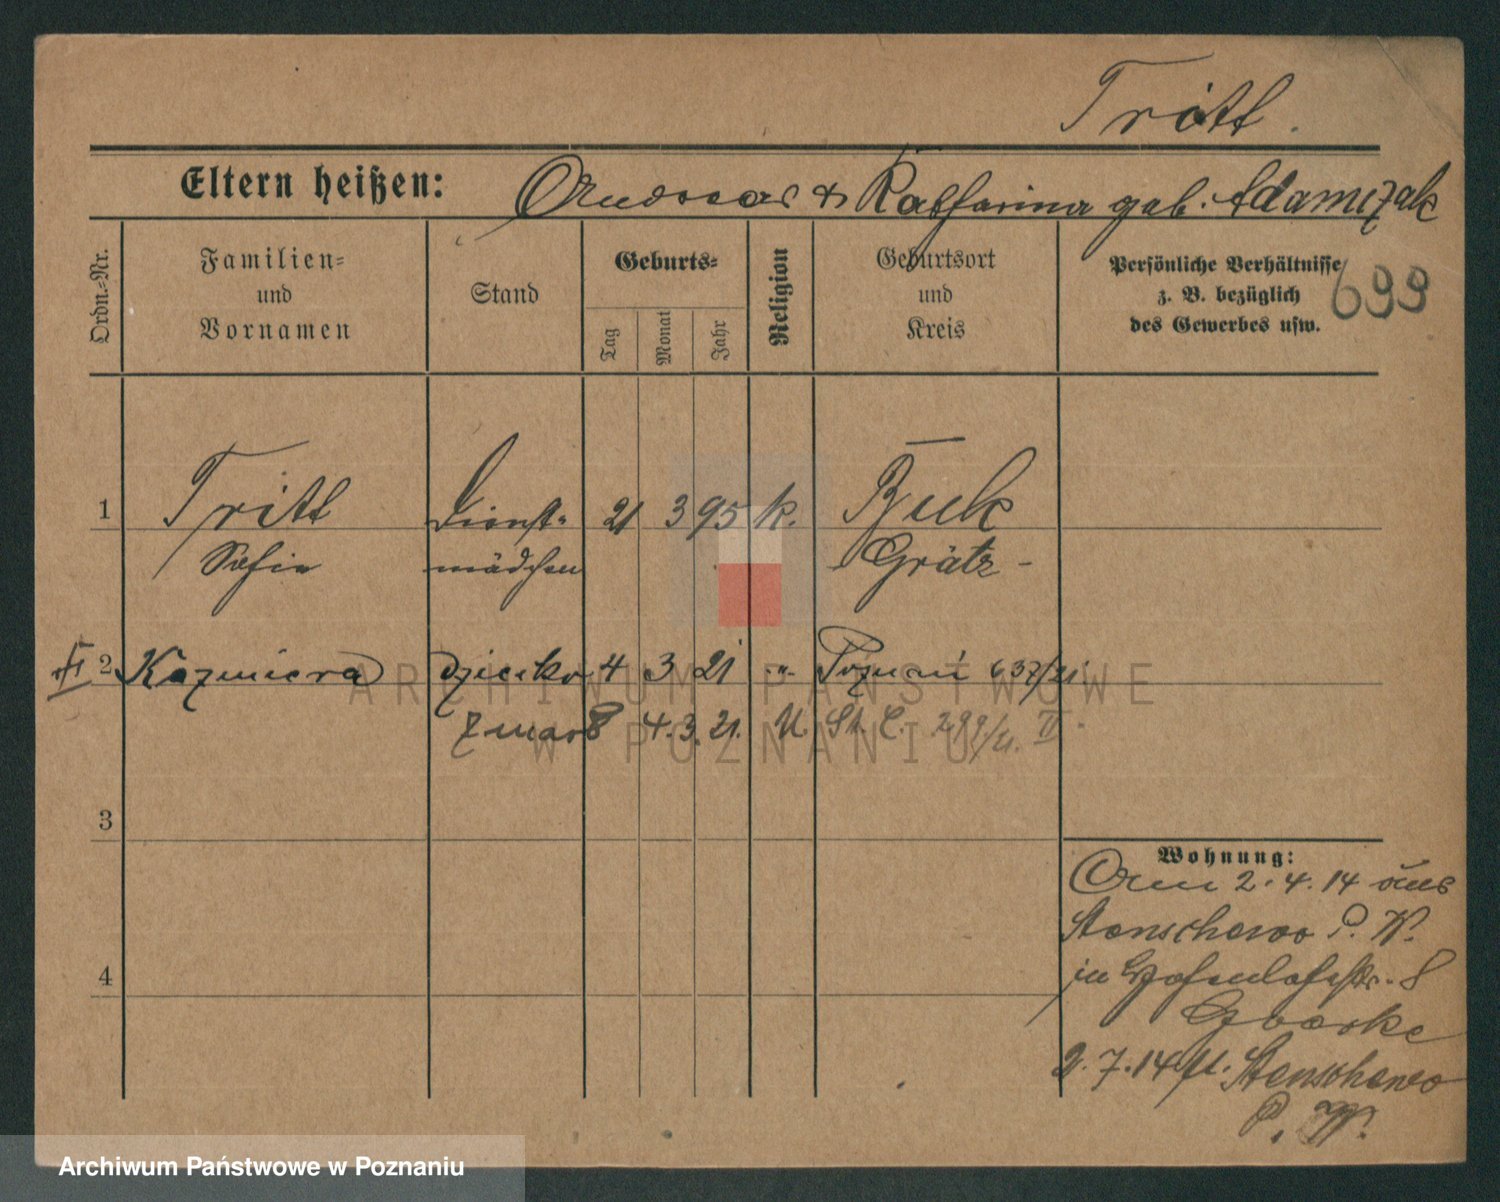 Tritt.
Eltern heißen: Andreas & Katharina geb. Adamczak
Ordn.-Nr.
Familien-
und
Vornamen
Stand
Geburts-
Tag
Monat
Jahr
Religion
Geburtsort
und
Kreis
Persönliche Verhältnisse
z. B. bezüglich
des Gewerbes usw.
699
1 Tritt Dienst- 21 3 95 k. Buk
Sofie mädchen Grätz -
2 Kazmiera dziecko 4 3 21 -"- Poznań 637/21
zmarł 4.3.21. U. St. C. 299/21. II.
3
4
Wohnung:
Am 2.4.14 aus
Stenschewo P. W.
in 8
2.7.14 Stenschewo
P. W.
ARCHIWUM PAŃSTWOWE
W POZNANIU
Archiwum Państwowe w Poznaniu